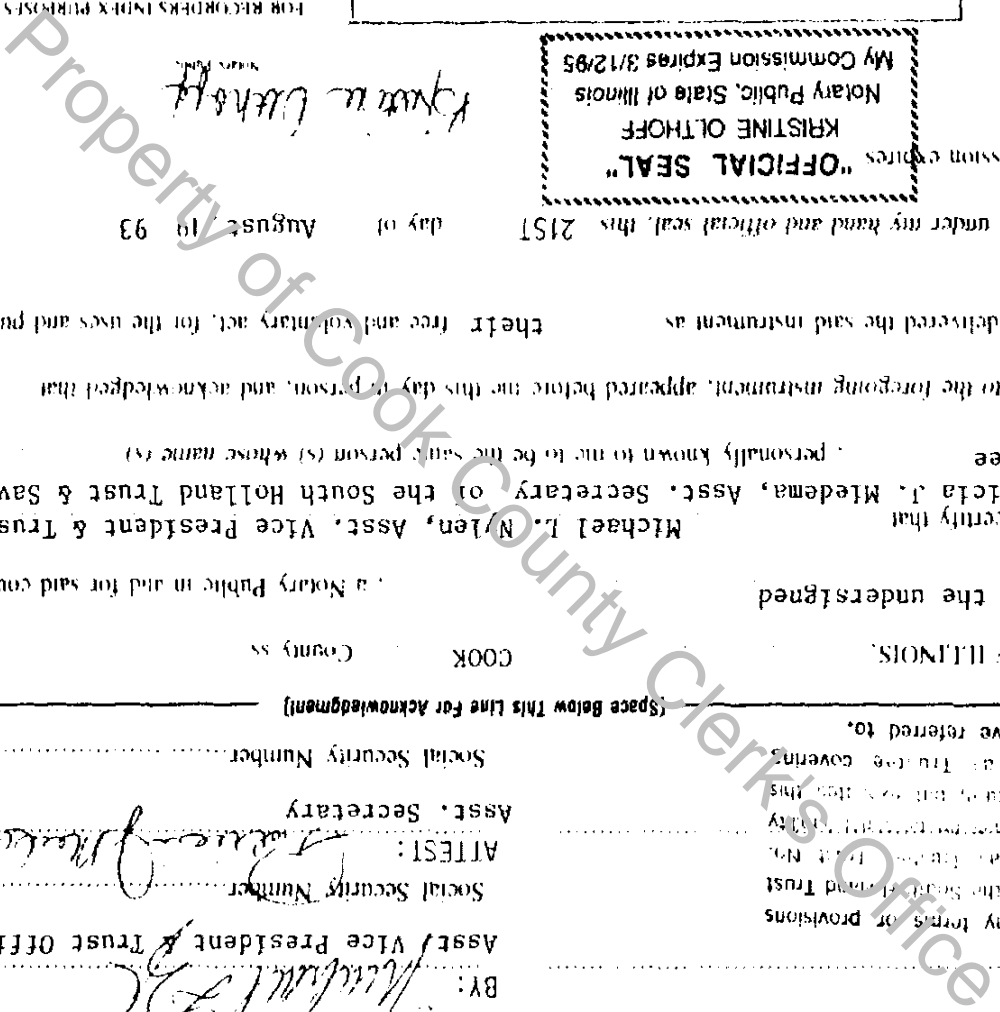 BY:
Asst/ Vice President & Trust Offi
y terms or provisions
Trust
Social Security Number
ATTEST:
Asst. Secretary
this
as Trustee covering
Social Security Number
ve referred to.
(Space Below This Line For Acknowledgment)
ILLINOIS, COOK County ss
the undersigned , a Notary Public in and for said cou
ertify that Michael L. Nylen, Asst. Vice President & Trus
icia J. Miedema, Asst. Secretary of the South Holland Trust & Sav
ee , personally known to me to be the same person (s) whose name (s)
to the foregoing instrument, appeared before me this day in person, and acknowledged that
delivered the said instrument as their free and voluntary act, for the uses and pu
under my hand and official seal, this 21ST day of August, 19 93
ssion expires
"OFFICIAL SEAL"
KRISTINE OLTHOFF
Notary Public, State of Illinois
My Commission Expires 3/12/95
Kristine Olthoff
Notary Public
FOR RECORDERS INDEX PURPOSES
Property of Cook County Clerk's Office